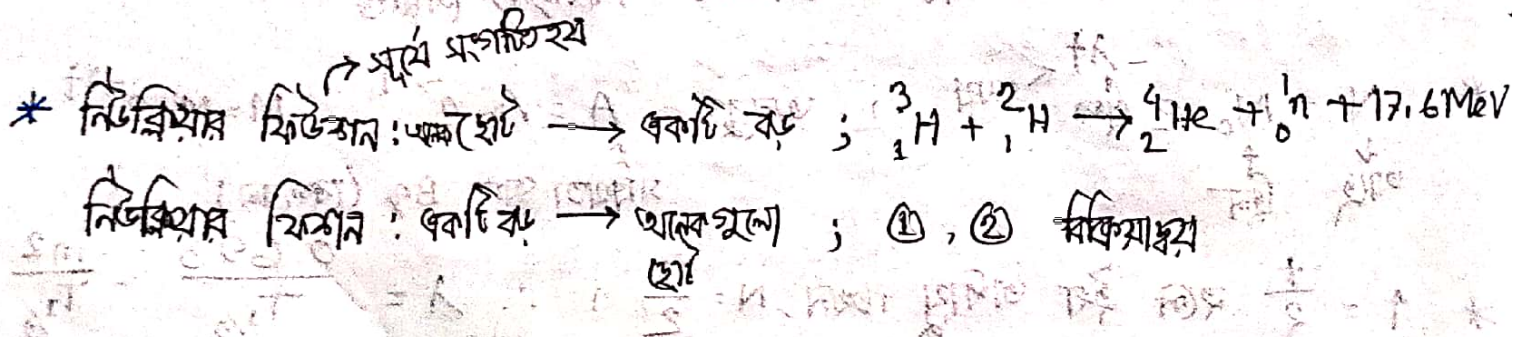 → সূর্যে সংগঠিত হয়
* নিউক্লিয়ার ফিউশন : অনেক ছোট → একটি বড় ; ³₁H + ²₁H → ⁴₂He + ¹₀n + 17.6 MeV
নিউক্লিয়ার ফিশন : একটি বড় → অনেকগুলো ; ①, ② বিক্রিয়াদ্বয়
ছোট